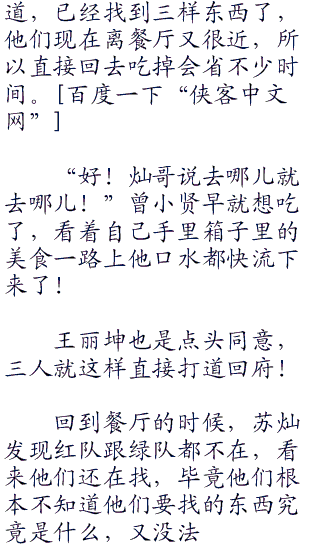 道，已经找到三样东西了，
他们现在离餐厅又很近，所
以直接回去吃掉会省不少时
间。[百度一下“侠客中文
网”]
“好！灿哥说去哪儿就
去哪儿！”曾小贤早就想吃
了，看着自己手里箱子里的
美食一路上他口水都快流下
来了！
王丽坤也是点头同意，
三人就这样直接打道回府！
回到餐厅的时候，苏灿
发现红队跟绿队都不在，看
来他们还在找，毕竟他们根
本不知道他们要找的东西究
竟是什么，又没法